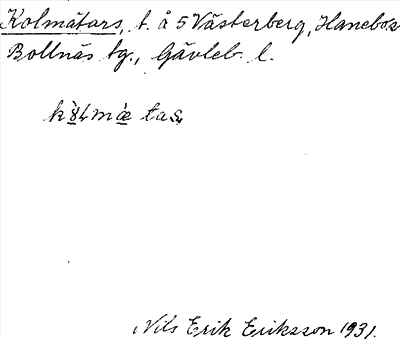 Kolmåtars, t. å 5 Västerberg, Hanebos
Bollnäs tg., Gävleb. l.
Nils Erik Eriksson 1931.